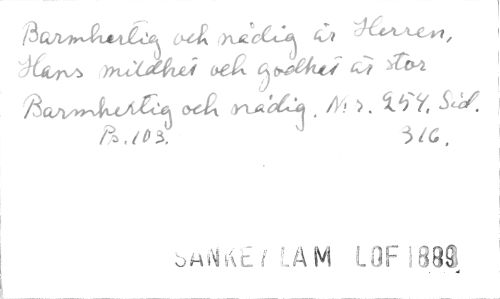 Barmhertig och nådig är Herren,
Hans mildhet och godhet är stor
Barmhertig och nådig. N:r. 254. Sid.
Ps. 103. 316.
SANKEY LAM LOF 1889